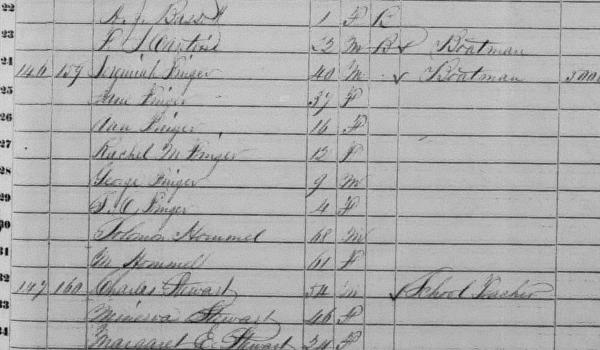 22 1 F B
23 F 23 M B Boatman
24 146 159 Jeremiah Finger 40 M Boatman 500
25 Jane Finger 37 F
26 Ann Finger 16 F
27 Rachel M Finger 12 F
28 George Finger 9 M
29 S. C. Finger 4 F
30 Solomon Hommel 68 M
31 M Hommel 61 F
32 147 160 Charles Stewart 54 M School Teacher
33 Minerva Stewart 46 F
34 Margaret E. Stewart 24 F